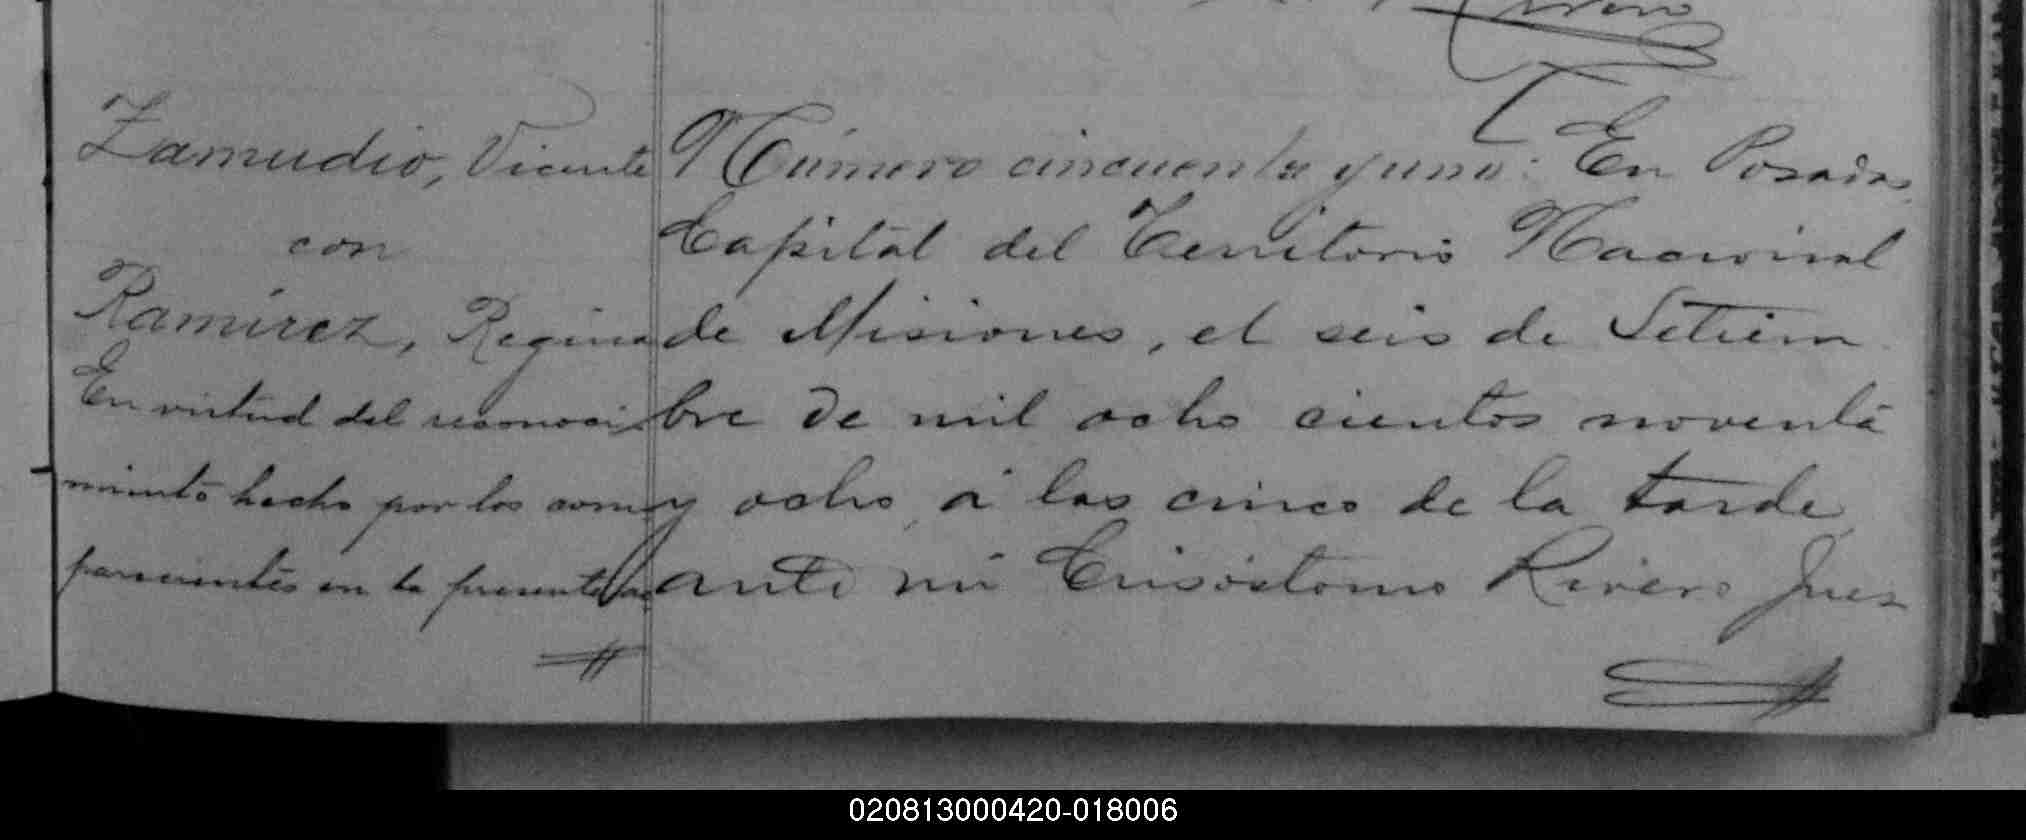 Rivero
Zamudio, Vicente
con
Ramírez, Regina
En virtud del reconoci
miento hecho por los com
parecientes en la presente ac
Número cincuenta y uno: En Posadas,
Capitál del Territorio Nacional
de Misiones, el seis de Setiem
bre de mil ocho cientos noventa
y ocho, á las cinco de la tarde,
ante mí Crisóstomo Rivero Juez
020813000420-018006